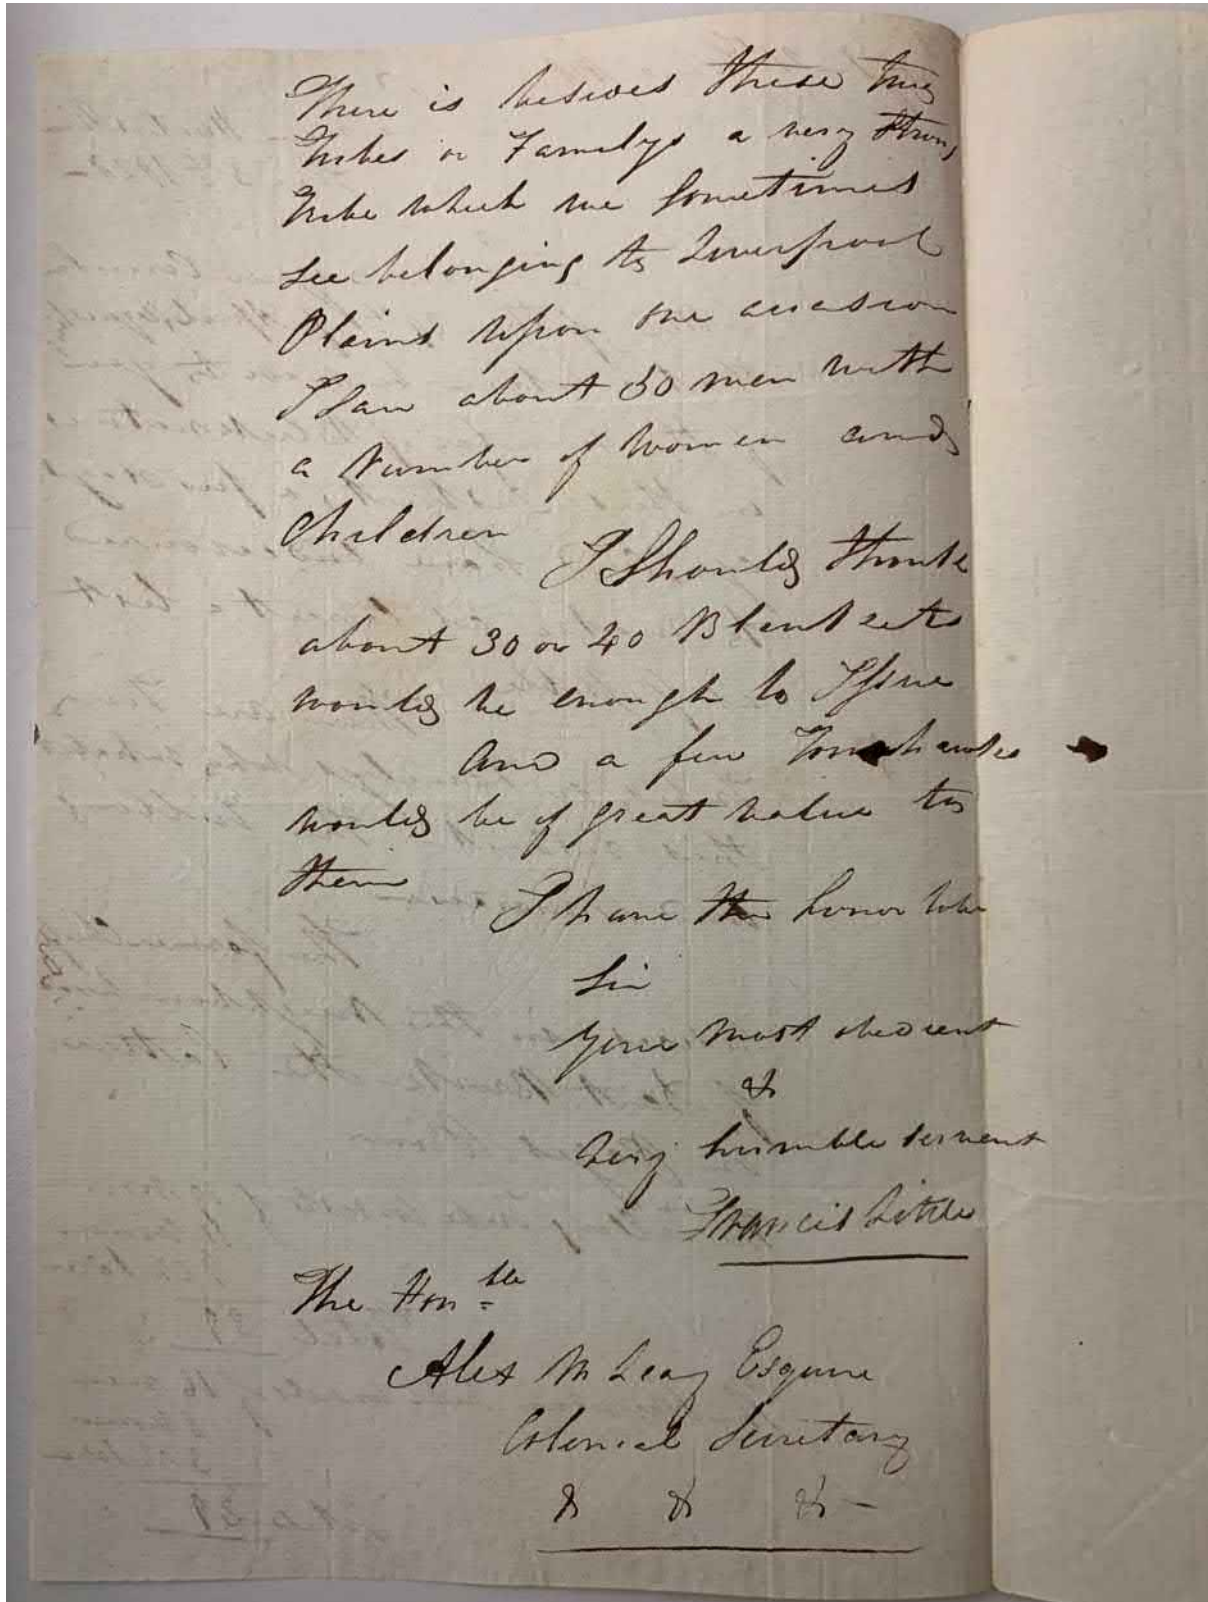 There is besides these two
Tribes or Familys a very Strong
Tribe which we Sometimes
See belonging to Liverpool
Plains Upon one occasion
I Saw about 50 men with
a Number of Women and
Children
I Should think
about 30 or 40 Blankeets
would be enough to Issue
And a few Tomahawks
would be of great value to
them
I have the honor to be
Sir
Your most obedient
&
Very humble servent
Francis Little
The Honble
Alex McLeay Esquire
Colonial Secretary
& & & -